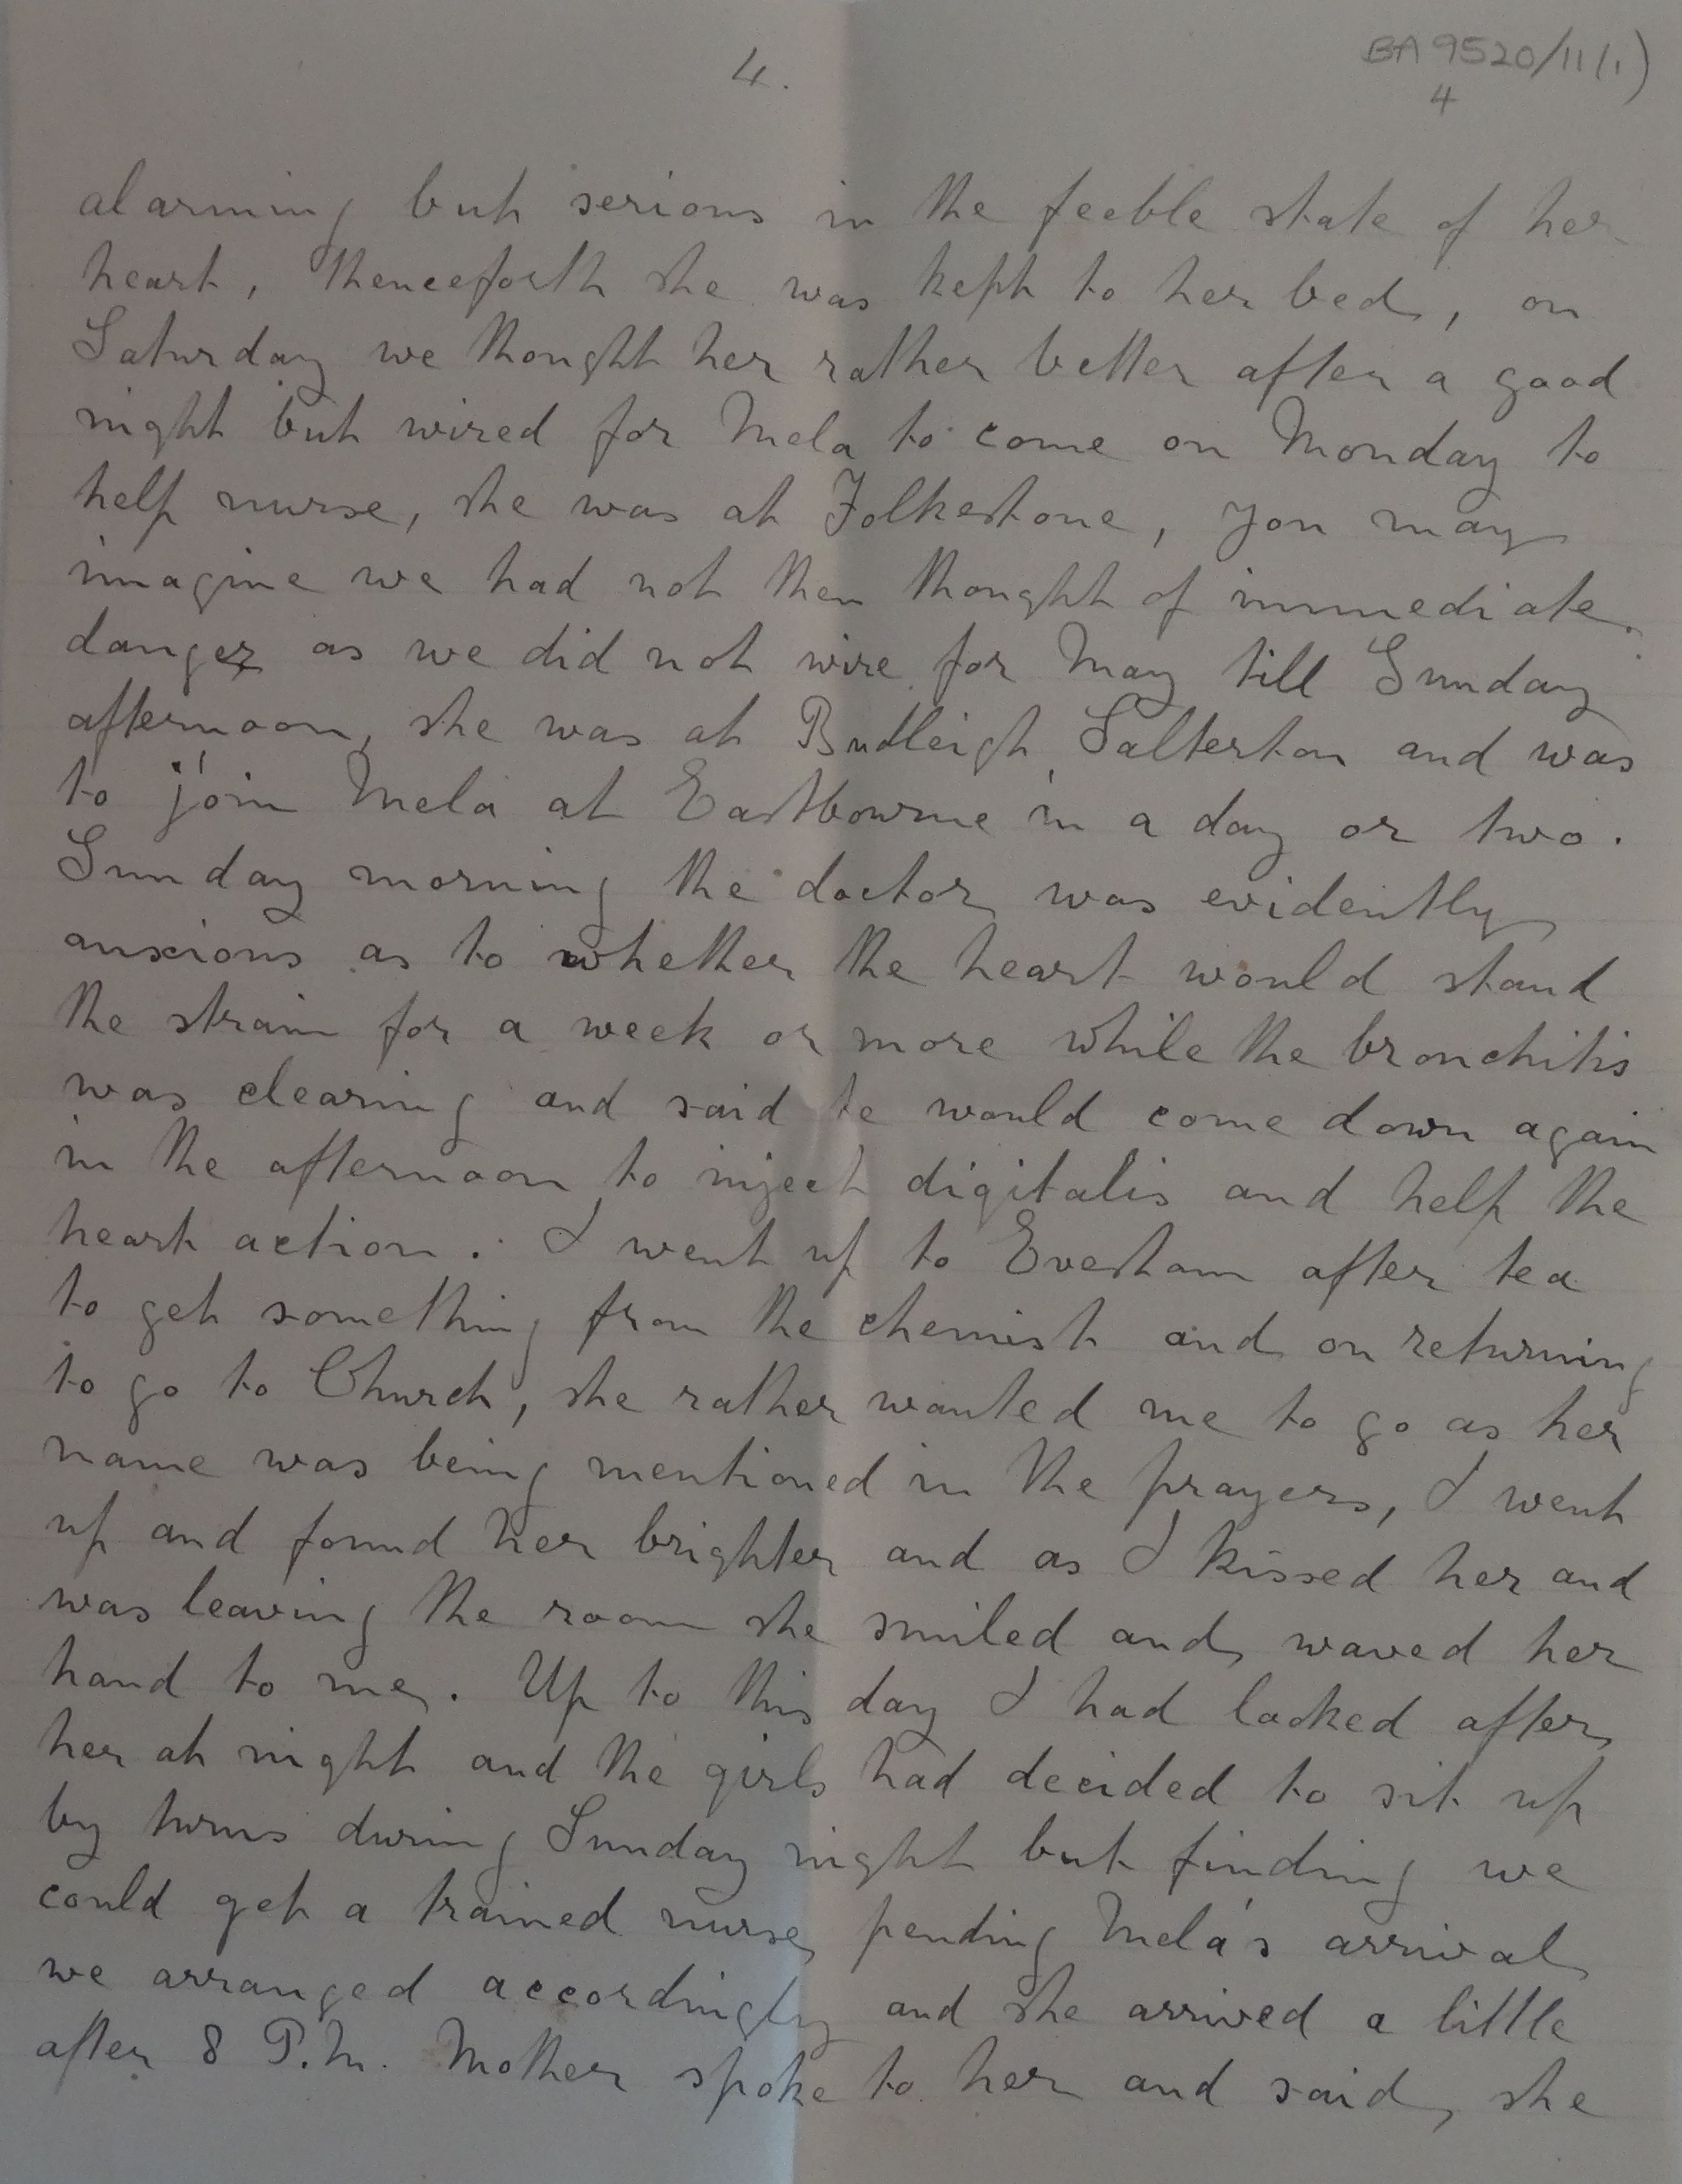 4.
BA 9520/11(1)
4
alarming but serious in the feeble state of her
heart, thenceforth she was kept to her bed, on
Saturday we thought her rather better after a good
night but wired for Mela to come on Monday to
help nurse, she was at Folkestone, you may
imagine we had not then thought of immediate
danger as we did not wire for May till Sunday
afternoon, she was at Budleigh Salterton and was
to join Mela at Eastbourne in a day or two.
Sunday morning the doctor was evidently
anxious as to whether the heart would stand
the strain for a week or more while the bronchitis
was clearing and said he would come down again
in the afternoon to inject digitalis and help the
heart action. I went up to Evesham after tea
to get something from the chemist and on returning
to go to Church, she rather wanted me to go as her
name was being mentioned in the prayers, I went
up and found her brighter and as I kissed her and
was leaving the room she smiled and waved her
hand to me. Up to this day I had looked after
her at night and the girls had decided to sit up
by turns during Sunday night but finding we
could get a trained nurse pending Mela's arrival
we arranged accordingly and she arrived a little
after 8 P.M. Mother spoke to her and said she